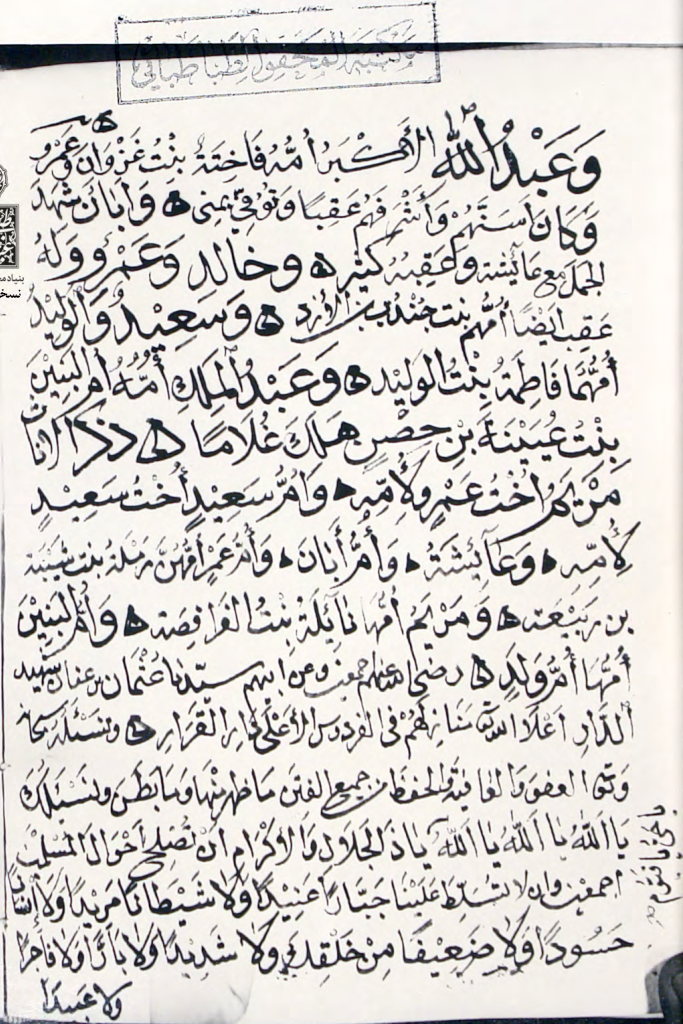 مكتبة المحقق الطباطبائي
وَعَبْدُ اللّٰه الأَكْبَرُ اُمُّهُ فَاخِتَةُ بِنْتُ غَزْوَان وَعَمْرو
وَكَانَ اَسَنَّهُمْ وَاَشْرَفَهُمْ عَقِبًا وَتُوُفِّيَ بِمِنًى ه وَاَبَانُ شَهِدَ
الجَمَلَ مع عَائِشَة وَعَقِبُه كَثِيْر ه وخَالد وَعَمْرو وَلَهُ
عَقِب اَيْضًا اُمُّهم بنت جُنْدب بن الأزد ه وَسَعِيْدُ وَالْوَلِيْدُ
اُمُّهُمَا فَاطِمَةُ بِنْتُ الْوَلِيْد ه وَعَبْدُ الْمَلِكِ اُمُّهُ اُمُّ البَنِيْنَ
بِنْتُ عُيَيْنَةَ بْنِ حِصْنٍ هَلَكَ غُلَامًا ه ذكر الاناث
مَرْيَمُ اُخْتُ عَمْرٍو لِاُمِّهِ ه وَاُمُّ سَعِيْدٍ اُخْتُ سَعِيْدٍ
لِاُمِّه ه وَعَائِشَةُ ه وَاُمُّ اَبَان ه وَاُمُّ عَمْرٍو اُمُّهُنَّ رَمْلَةُ بنت شَيْبَة
بن رَبِيْعَة ه وَمَرْيَمُ اُمُّهَا نَائِلَةُ بِنْتُ الفَرَافِصَة ه وَاُمُّ البَنِيْنَ
اُمُّهَا اُمُّ وَلَدٍ ه رضى الله عنهم اجمعين وعن ابيهم سيّدنا عُثْمَان بن عفان شهيد
الدَّار اعْلَا الله مَنَازِلَهُمْ فى الفردوس الأعْلَى دَارِ القَرَار ه ونَسْئَلُه سبحانه
وتعالى العفو وَالعَافِيَةَ وَالحفظ من جميع الفتن مَا ظهر مِنْهَا ومَا بَطَن ونسْئَلك
يَا اَللّٰهُ يَا اَللّٰهُ يَا اَللّٰهُ يَا ذَا الجَلَالِ وَالاِكْرَام اَنْ تُصْلِحَ اَحْوَالَ المسلمين
اجمعين وان لا تسَلِّطَ عَلَيْنَا جَبَّارًا عَنِيْدًا وَلَا شَيْطَانًا مَرِيْدًا وَلَا اِنْسَانًا
حَسُودًا وَلَا ضَعِيْفًا مِنْ خَلْقِكَ وَلَا شَدِيْدًا وَلَا بَارًّا وَلَا فَاجِرًا
ولا عبيدًا
يا حيّ يا قيّوم